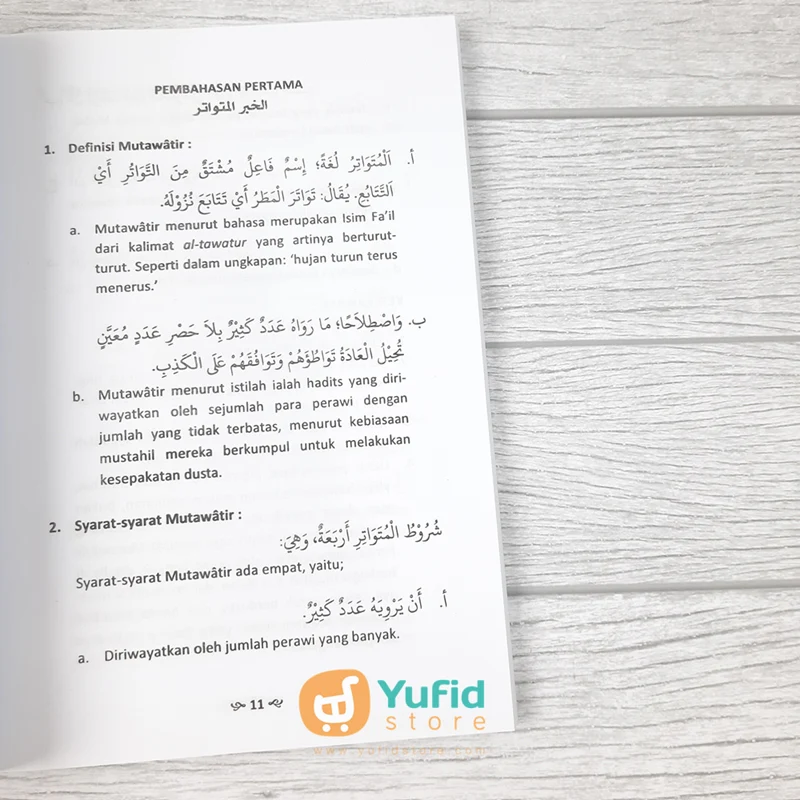 PEMBAHASAN PERTAMA
الخبر المتواتر
1. Definisi Mutawâtir :
أ. اَلْمُتَوَاتِرُ لُغَةً؛ إِسْمٌ فَاعِلٌ مُشْتَقٌّ مِنَ التَّوَاتُرِ أَيْ
اَلتَّتَابُعِ. يُقَالُ: تَوَاتَرَ الْمَطَرُ أَيْ تَتَابَعَ نُزُوْلُهُ.
a. Mutawâtir menurut bahasa merupakan Isim Fa'il
dari kalimat al-tawatur yang artinya berturut-
turut. Seperti dalam ungkapan: 'hujan turun terus
menerus.'
ب. وَاصْطِلَاحًا؛ مَا رَوَاهُ عَدَدٌ كَثِيْرٌ بِلاَ حَصْرِ عَدَدٍ مُعَيَّنٍ
تُحِيْلُ الْعَادَةُ تَوَاطُؤَهُمْ وَتَوَافُقَهُمْ عَلَى الْكَذِبِ.
b. Mutawâtir menurut istilah ialah hadits yang diri-
wayatkan oleh sejumlah para perawi dengan
jumlah yang tidak terbatas, menurut kebiasaan
mustahil mereka berkumpul untuk melakukan
kesepakatan dusta.
2. Syarat-syarat Mutawâtir :
شُرُوْطُ الْمُتَوَاتِرِ أَرْبَعَةٌ، وَهِيَ:
Syarat-syarat Mutawâtir ada empat, yaitu;
أ. أَنْ يَرْوِيَهُ عَدَدٌ كَثِيْرٌ.
a. Diriwayatkan oleh jumlah perawi yang banyak.
11
Yufid
store
www.yufidstore.com